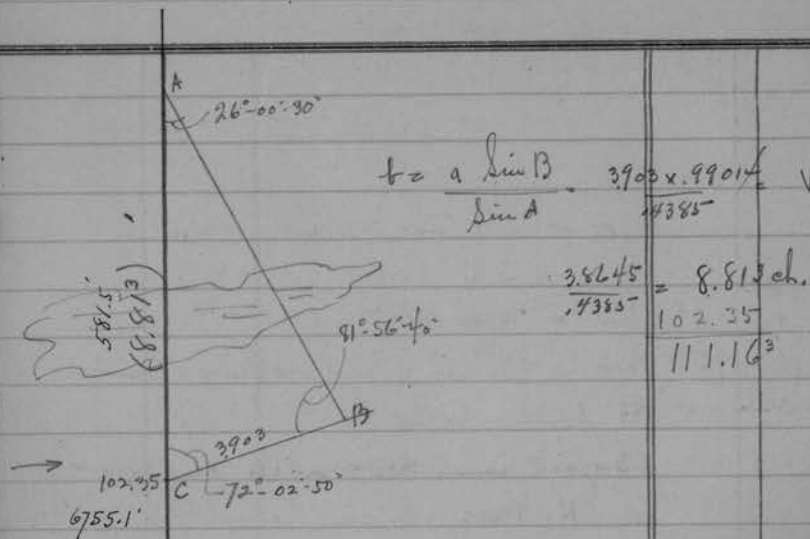 A
26°-00'-30"
b = a Sin B / Sin A = 3.903 x .99014 / .4385 =
3.8645 / .4385 = 8.813 ch.
102.35
111.16³
(8.813)
581.5'
81°-56'-40"
B
3.903
102.35 C
72°-02'-50"
6755.1'